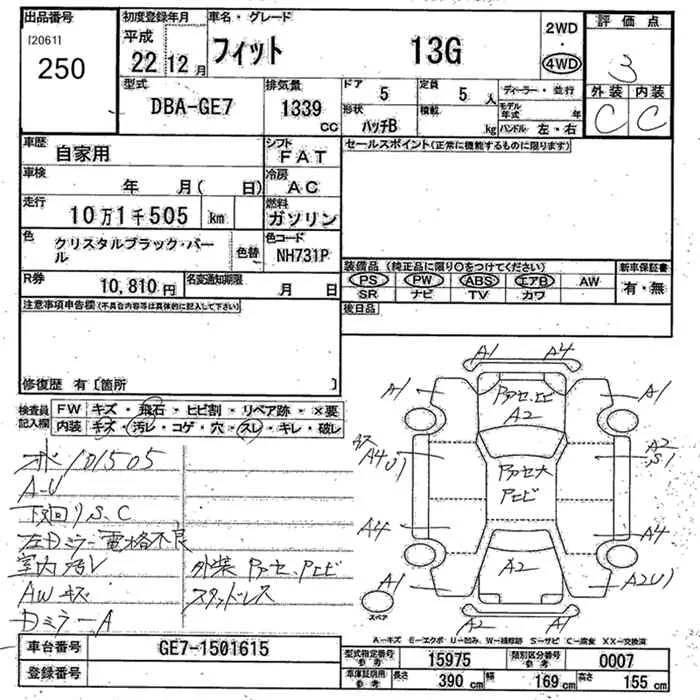 出品番号 初度登録年月 車名・グレード 2WD ・ 4WD 評価点
[2061] 250 平成 22 12月 フィット 13G 3
型式 DBA-GE7 排気量 1339 cc ドア 5 定員 5 人 ディーラー・並行 外装 内装
形状 ハッチB 積載 kg モデル年式 年 ハンドル 左・右 C C
車歴 自家用 シフト FAT セールスポイント(正常に機能するものに限ります)
車検 年 月( 日) 冷房 AC
走行 10万1千505 km 燃料 ガソリン
色 クリスタルブラック・パール 色替 色コード NH731P
装備品 (純正品に限り○をつけてください) 新車保証書
PS PW ABS エアB AW 有・無
SR ナビ TV カワ
R券 10,810円 名変通知期限 月 日
後日品
注意事項申告欄(不具合内容等は具体的に記入して下さい)
修復歴 有 [箇所 ]
検査員記入欄 FW キズ・飛石・ヒビ割・リペア跡・×要
内装 キズ・汚レ・コゲ・穴・スレ・キレ・破レ
101505
A-U
下回りS、C
左Dミラー電格不良
室内汚レ
AWキズ
DミラーA
外装
スタッドレス
A1 A4
A1 A1
A2
A4 A2
U1 S1
A4 A4
A1 A2 A2U1
A2 A1
スペア
A-キズ E-エクボ U-凹み W-補修跡 S-サビ C-腐食 XX-交換済
車台番号 GE7-1501615 型式指定番号 参考 15975 類別区分番号 参考 0007
登録番号 車庫証明用 参考 長さ 390 cm 幅 169 cm 高さ 155 cm